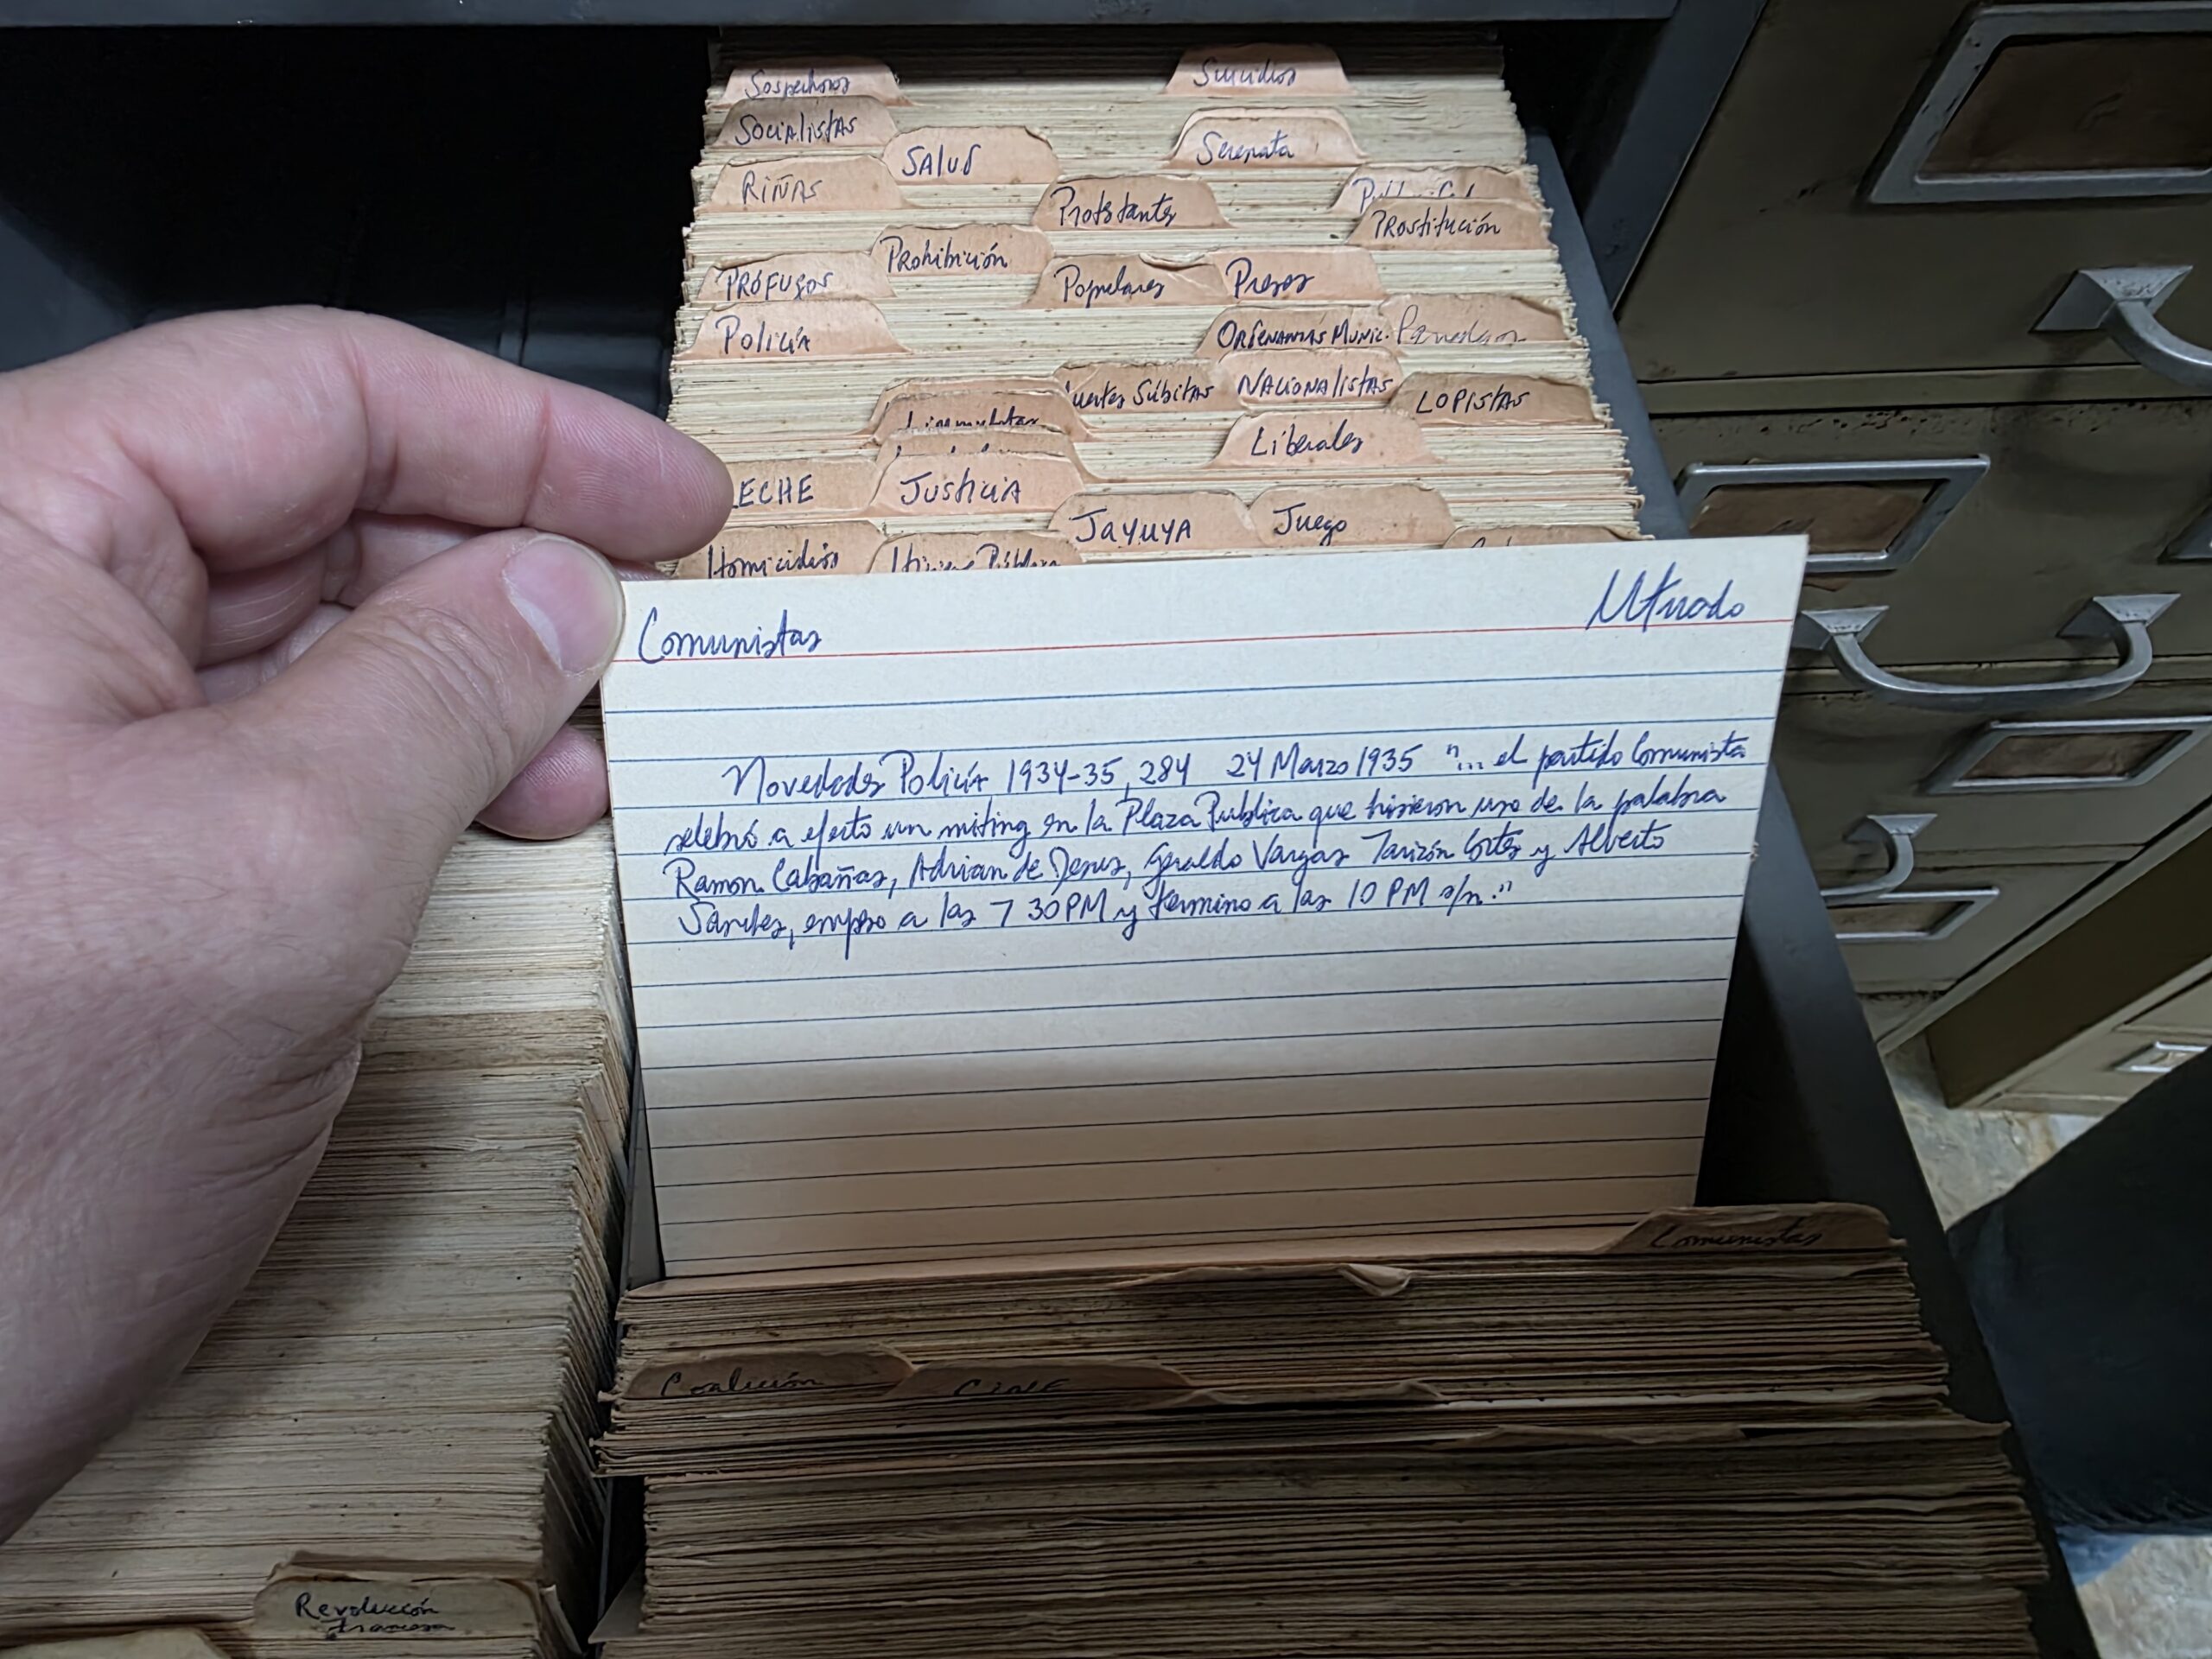 Sospechosos
Suicidios
Socialistas
Salud
Serenata
Riñas
Protestantes
Prostitución
Prohibición
Prófugos
Populares
Presos
Policía
Ordenanzas Munic.
uertes Súbitas
Nacionalistas
Lopistas
Liberales
LECHE
Justicia
Jayuya
Juego
Homicidios
Higiene Pública
Comunistas
Utuado
Novedades Policía 1934-35, 284 24 Marzo 1935 "... el partido Comunista
selebró a efecto un miting en la Plaza Publica que hisieron uso de la palabra
Ramon Cabañas, Adrian de Jesus, Geraldo Vargas Tarizón Cortes y Alberto
Sanches, empeso a las 7 30 PM y termino a las 10 PM s/n."
Comunistas
Coalición
Cine
Revolución
francesa